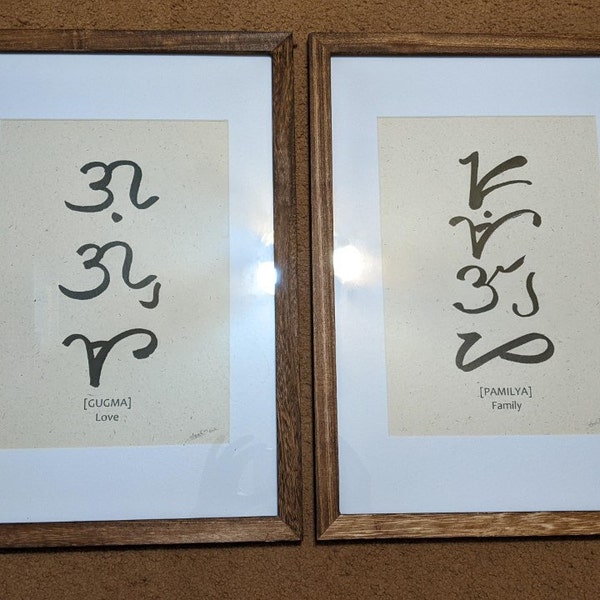 ᜄᜓ
ᜄ᜔
ᜋ
[GUGMA]
Love
ᜉ
ᜋᜒ
ᜎ᜔
ᜌ
[PAMILYA]
Family